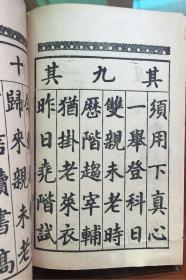 其九其十
須用下真心
一舉登科日
雙親未老時
歷階趨宰輔
猶掛老萊衣
昨日堯階試
歸來親未老
讀書高